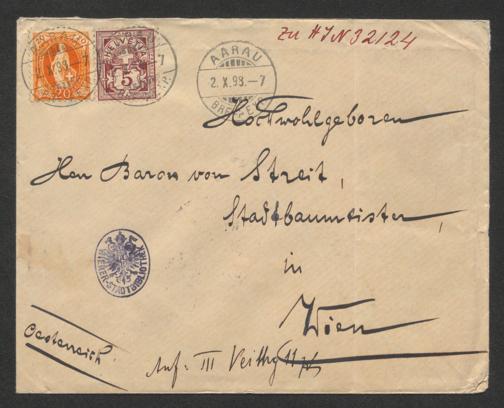 Zu HIN 32124
20
HELVETIA
5
AARAU
2.X.93.–7
Hochwohlgeboren
Herr Baron von Streit,
Stadtbaumeister,
in
Wien
WIENER-STADTBIBLIOTHEK
Oesterreich.
III